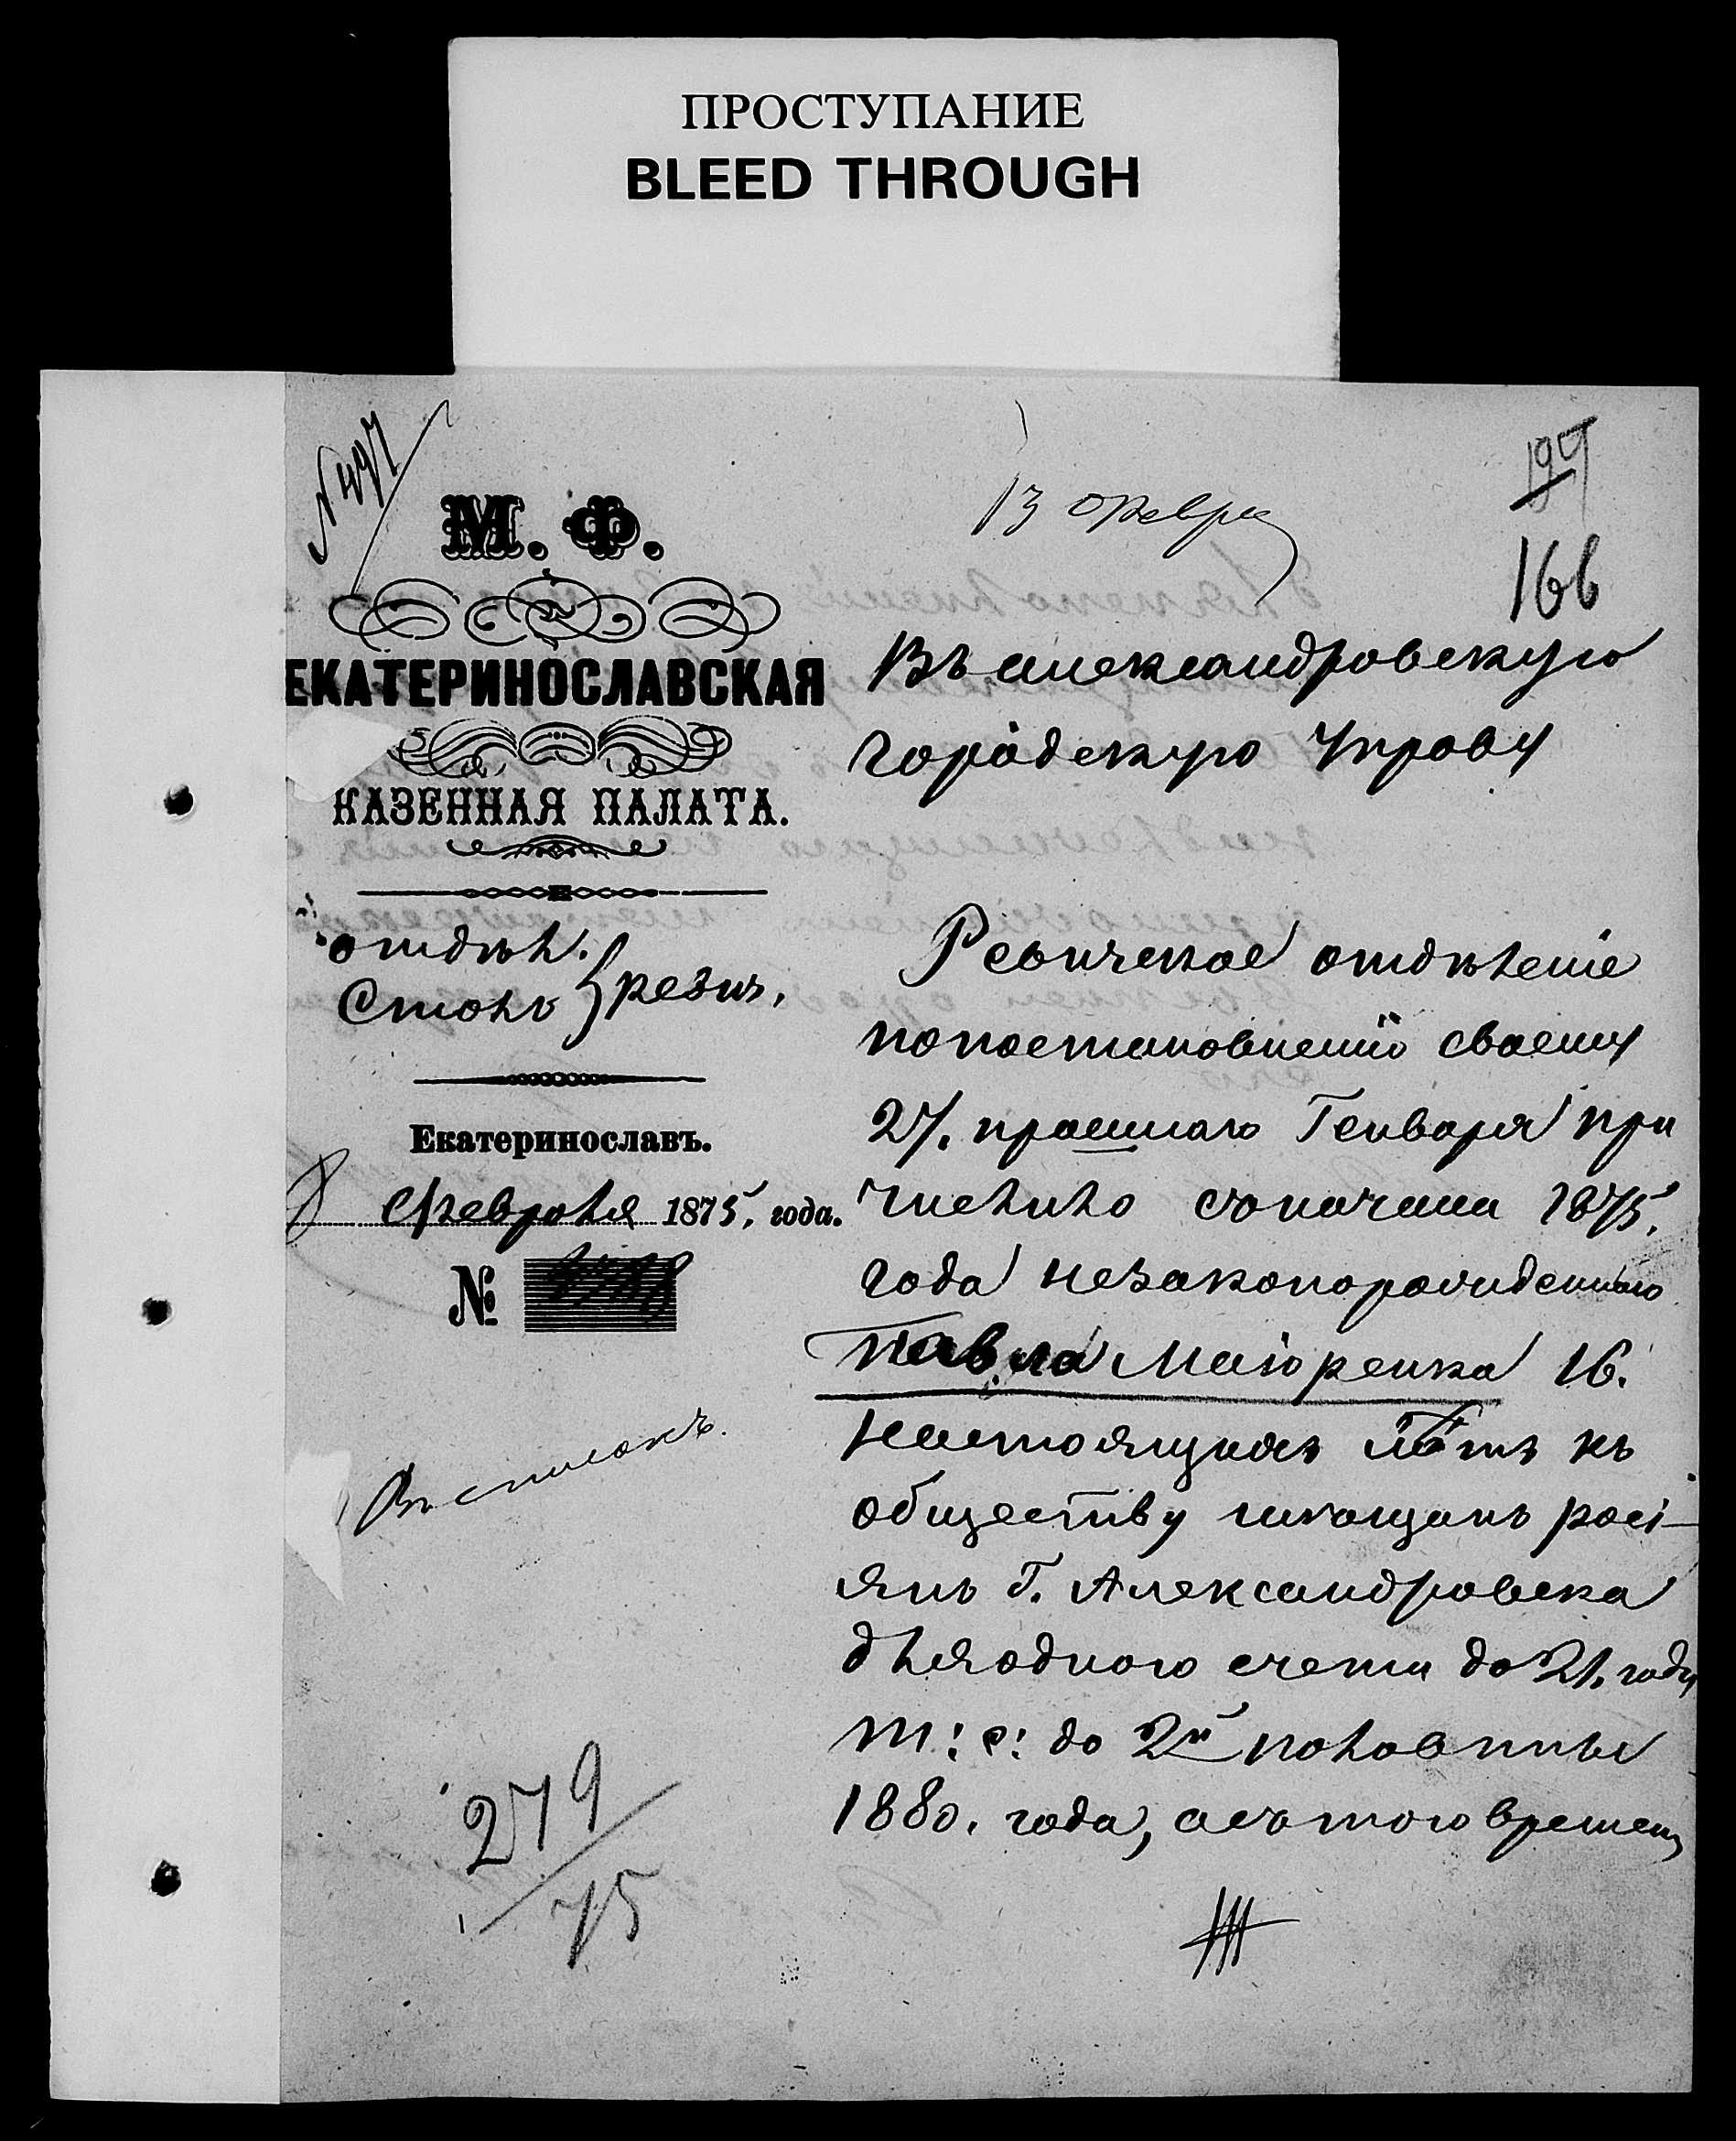 ПРОСТУПАНИЕ
BLEED THROUGH
№ 497
13 февра
199
166
М. Ф.
ЕКАТЕРИНОСЛАВСКАЯ
КАЗЕННАЯ ПАЛАТА.
отдѣл.
Столъ } ревиз.
Екатеринославъ.
Февраля 1875, года.
№
Въ списокъ.
279
75
Въ александровскую
городскую Управу
Ревизское отдѣленіе
по постановленію своему
27. прошлаго Генваря при
числило съ начала 1875,
года незаконорожденнаго
Павла Маіоренка 16.
настоящихъ лѣтъ къ
обществу мѣщанъ росі-
янъ Г. Александровска
для одного счета до 21. году
т: е: до 2й половины
1880. года, а съ того времени